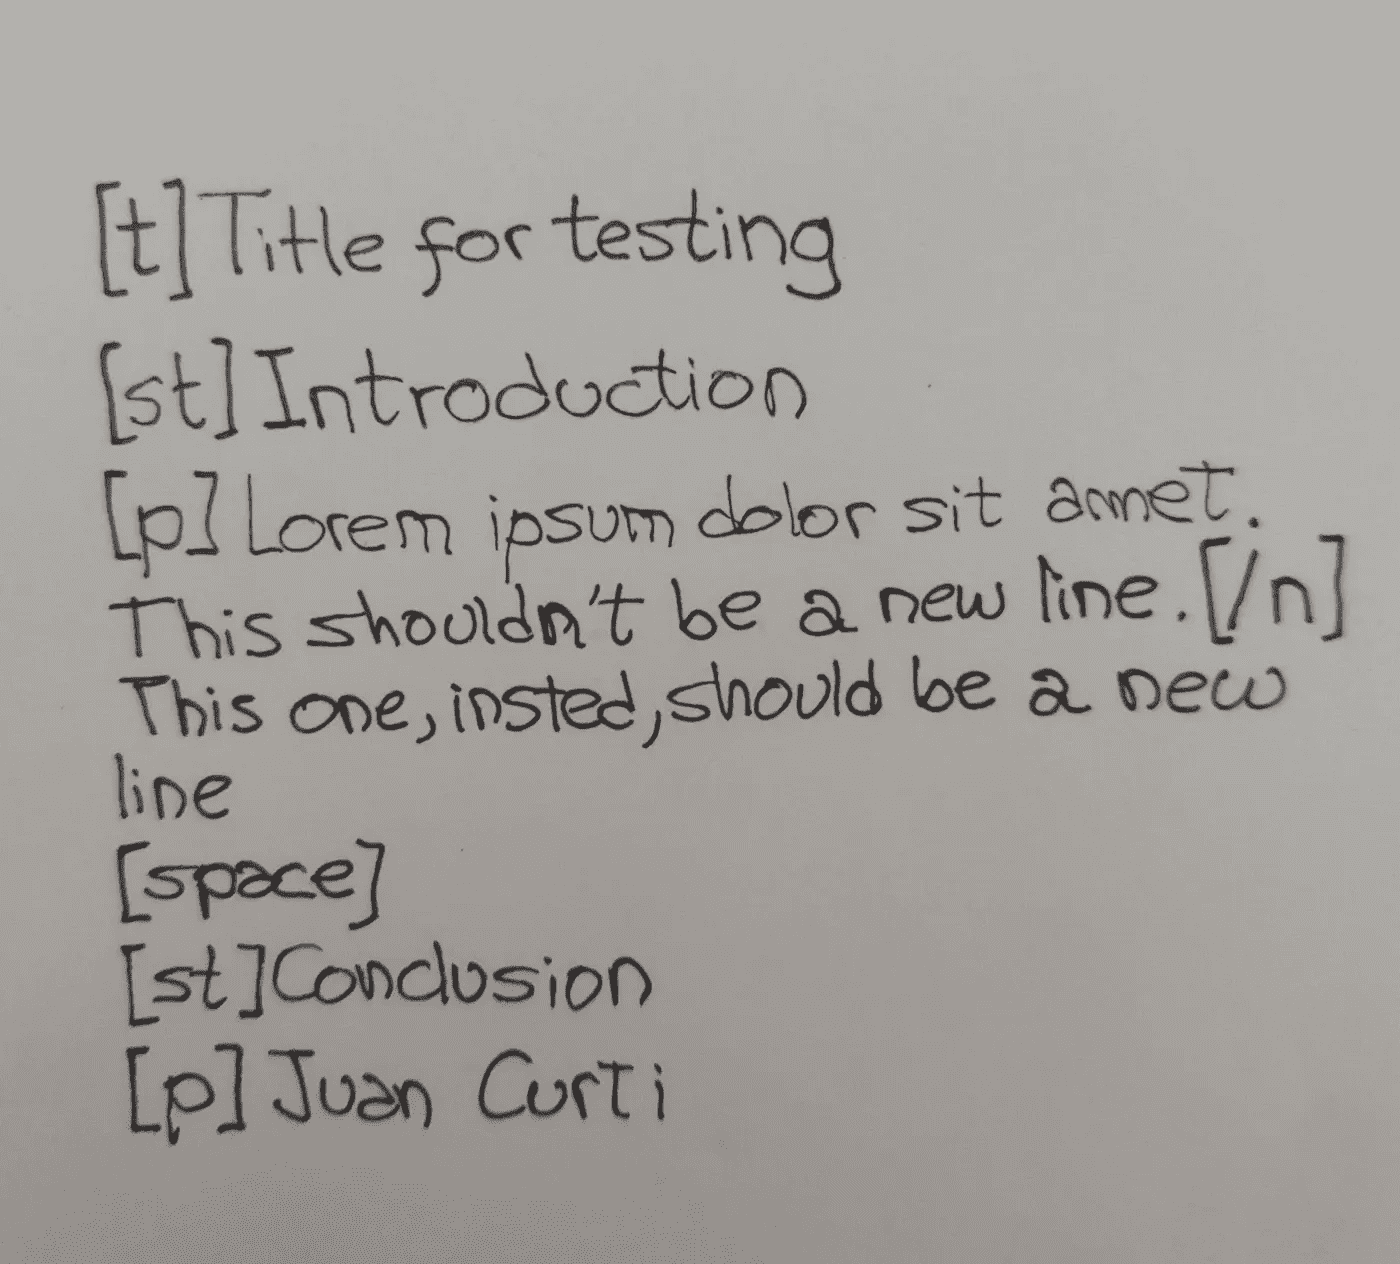 [t] Title for testing
[st] Introduction
[p] Lorem ipsum dolor sit amnet.
This shouldn't be a new line. [/n]
This one, insted, should be a new
line
[space]
[st] Conclusion
[p] Juan Curti